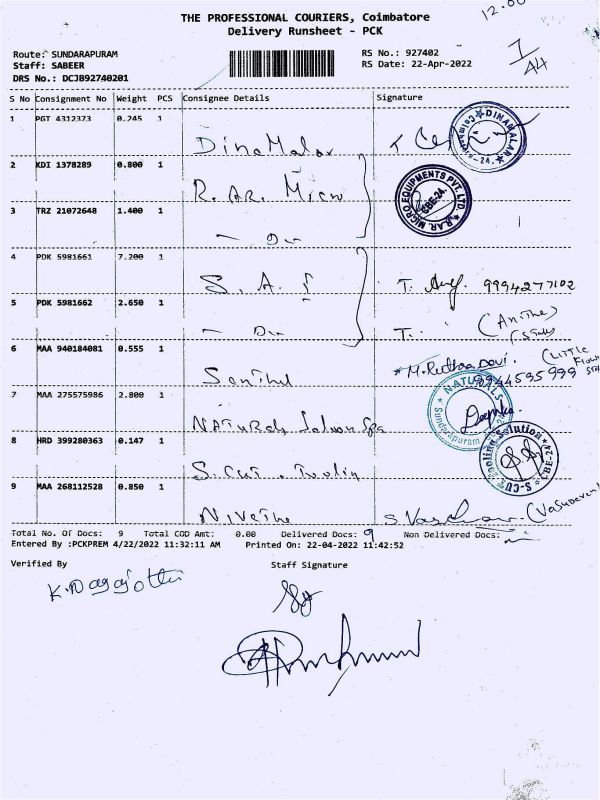 THE PROFESSIONAL COURIERS, Coimbatore
Delivery Runsheet - PCK
12.00
Route: SUNDARAPURAM
Staff: SABEER
DRS No.: DCJB92740201
RS No.: 927402
RS Date: 22-Apr-2022
S No Consignment No Weight PCS Consignee Details Signature
1 PGT 4312373 0.245 1 DineMalar
DINAMALAR
2 KDI 1378289 0.800 1 R. AR. Micro
R.AR. MICRO EQUIPMENTS PVT. LTD.
CBE-24.
3 TRZ 21072648 1.400 1
4 PDK 5981661 7.200 1 S. A. T. 9994277102
5 PDK 5981662 2.650 1 T. (Anitha)
6 MAA 940184081 0.555 1 Senthil M. Radha Devi. 9944595999 (LITTLE
7 MAA 275575986 2.800 1 NATURals Saloon Spa
NATURALS
Sundarapuram
Deepika
8 HRD 399280363 0.147 1 S. CUT Toolin
S-CUT Tooling Solution
CBE-24
9 MAA 268112528 0.850 1 Nivetha
Total No. Of Docs: 9 Total COD Amt: 0.00 Delivered Docs: 9 Non Delivered Docs:
Entered By :PCKPREM 4/22/2022 11:32:11 AM Printed On: 22-04-2022 11:42:52
Verified By Staff Signature